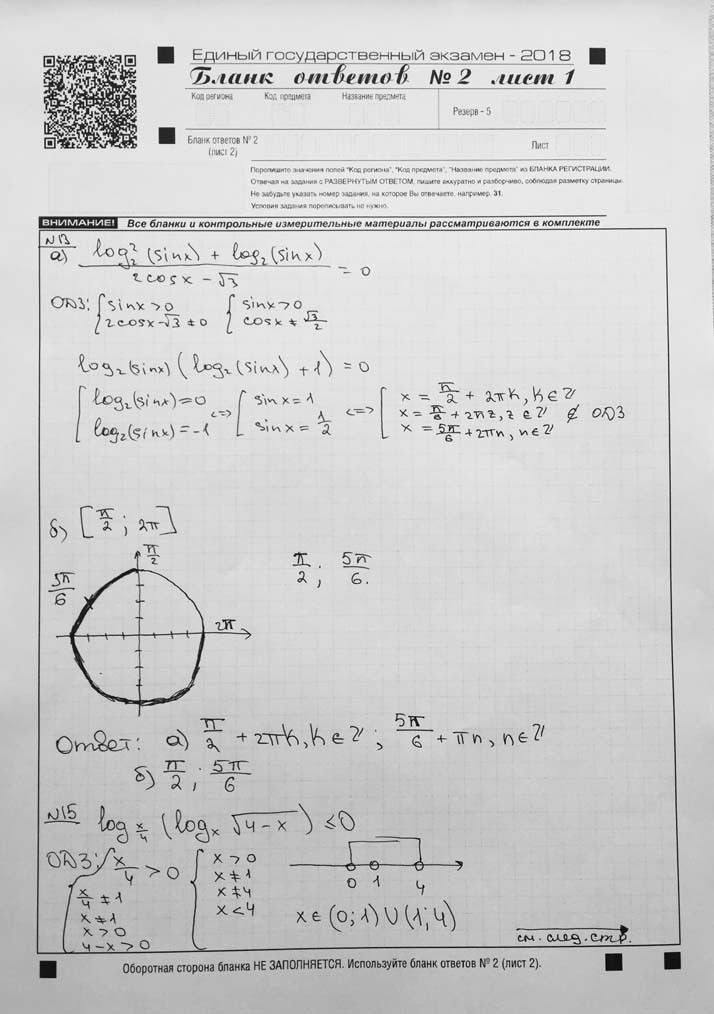 Единый государственный экзамен - 2018
Бланк ответов № 2 лист 1
Код региона Код предмета Название предмета
Резерв - 5
Бланк ответов № 2
(лист 2)
Лист
Перепишите значения полей "Код региона", "Код предмета", "Название предмета" из БЛАНКА РЕГИСТРАЦИИ.
Отвечая на задания с РАЗВЕРНУТЫМ ОТВЕТОМ, пишите аккуратно и разборчиво, соблюдая разметку страницы.
Не забудьте указать номер задания, на которое Вы отвечаете, например, 31.
Условия задания переписывать не нужно.
ВНИМАНИЕ! Все бланки и контрольные измерительные материалы рассматриваются в комплекте
№13
а) (log₂²(sinx) + log₂(sinx)) / (2cosx - √3) = 0
ОДЗ: { sinx > 0 { sinx > 0
{ 2cosx - √3 ≠ 0 { cosx ≠ √3/2
log₂(sinx) (log₂(sinx) + 1) = 0
[ log₂(sinx) = 0 <=> [ sinx = 1 <=> [ x = π/2 + 2πk, k ∈ ℤ
[ log₂(sinx) = -1 [ sinx = 1/2 [ x = π/6 + 2πz, z ∈ ℤ ∉ ОДЗ
[ x = 5π/6 + 2πn, n ∈ ℤ
б) [π/2; 2π]
π/2
5π/6
2π
π/2; 5π/6.
Ответ: а) π/2 + 2πk, k ∈ ℤ; 5π/6 + πn, n ∈ ℤ
б) π/2; 5π/6
№15 log_{x/4} (log_x √(4-x)) ≤ 0
ОДЗ: { x/4 > 0 { x > 0
{ x/4 ≠ 1 { x ≠ 1
{ x ≠ 1 { x ≠ 4
{ x > 0 { x < 4
{ 4-x > 0
0 1 4
x ∈ (0; 1) ∪ (1; 4)
см. след. стр.
Оборотная сторона бланка НЕ ЗАПОЛНЯЕТСЯ. Используйте бланк ответов № 2 (лист 2).